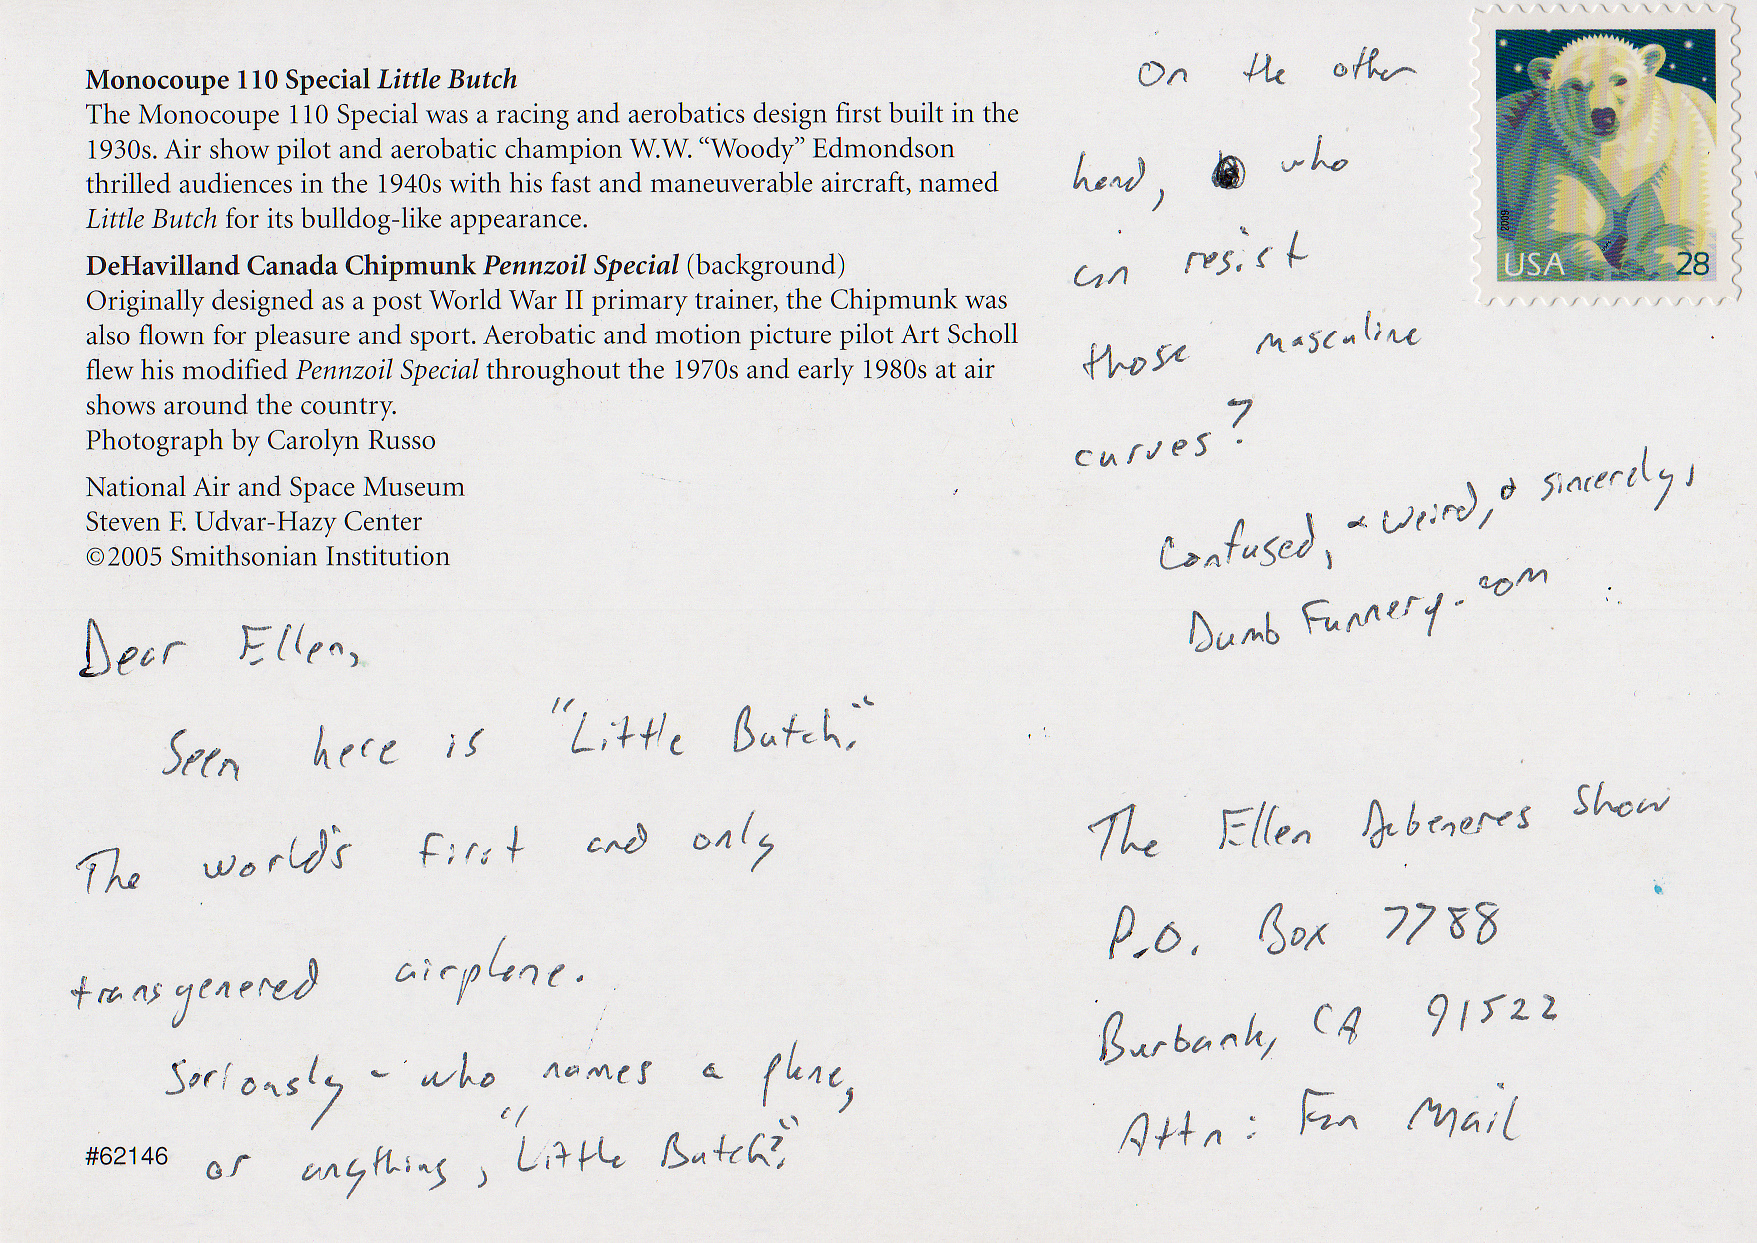 Monocoupe 110 Special Little Butch
The Monocoupe 110 Special was a racing and aerobatics design first built in the
1930s. Air show pilot and aerobatic champion W.W. “Woody” Edmondson
thrilled audiences in the 1940s with his fast and maneuverable aircraft, named
Little Butch for its bulldog-like appearance.
DeHavilland Canada Chipmunk Pennzoil Special (background)
Originally designed as a post World War II primary trainer, the Chipmunk was
also flown for pleasure and sport. Aerobatic and motion picture pilot Art Scholl
flew his modified Pennzoil Special throughout the 1970s and early 1980s at air
shows around the country.
Photograph by Carolyn Russo
National Air and Space Museum
Steven F. Udvar-Hazy Center
©2005 Smithsonian Institution
Dear Ellen,
Seen here is "Little Butch."
The world's first and only
transgenered airplane.
Seriously - who names a plane,
or anything, "Little Butch?"
#62146
On the other
hand, who
can resist
those masculine
curves?
Confused, & weird, & sincerely,
Dumb Funnery.com
2009
USA 28
The Ellen Debeneres Show
P.O. Box 7788
Burbank, CA 91522
Attn: Fan Mail